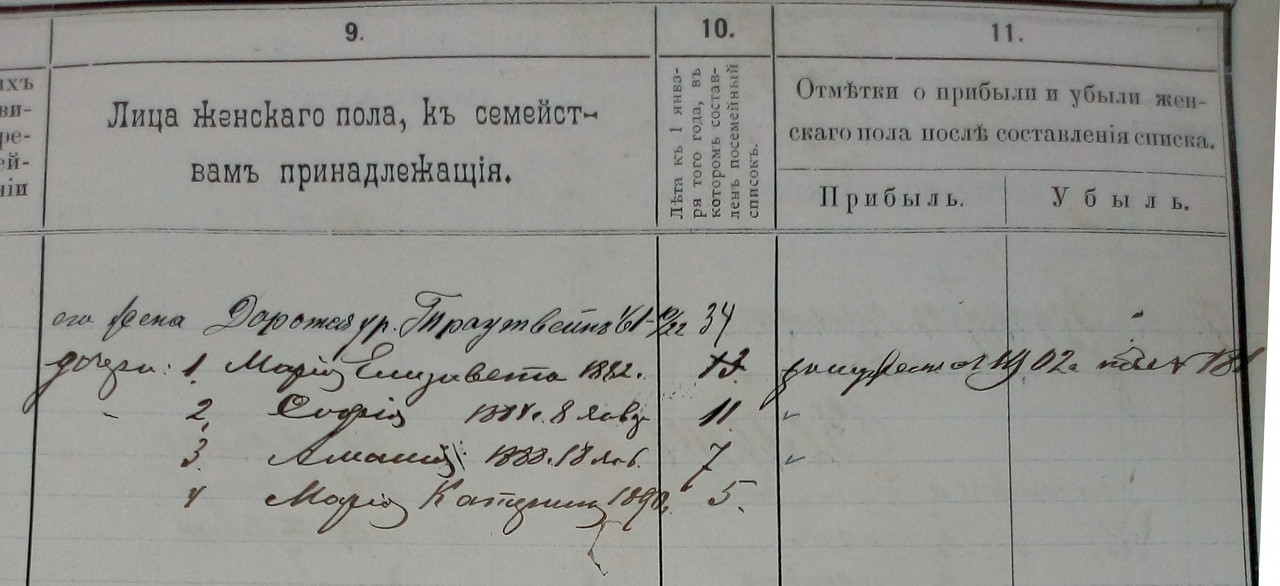 9.
10.
11.
ихъ
ви-
ре-
ей-
ніи
Лица женскаго пола, къ семейст-
вамъ принадлежащія.
Лѣта къ 1 янва-
ря того года, въ
которомъ состав-
ленъ посемейный
списокъ.
Отмѣтки о прибыли и убыли жен-
скаго пола послѣ составленія списка.
Прибыль.
Убыль.
его жена Доротея ур. Траутвейнъ 61 34
дочери: 1. Марія Елизавета 1882. 13. 1902
2. Софія 1884. 8 Янв 11. "
3. Амалія 1888. 18 Янв. 7 "
4 Марія Катерина 1890. 5.